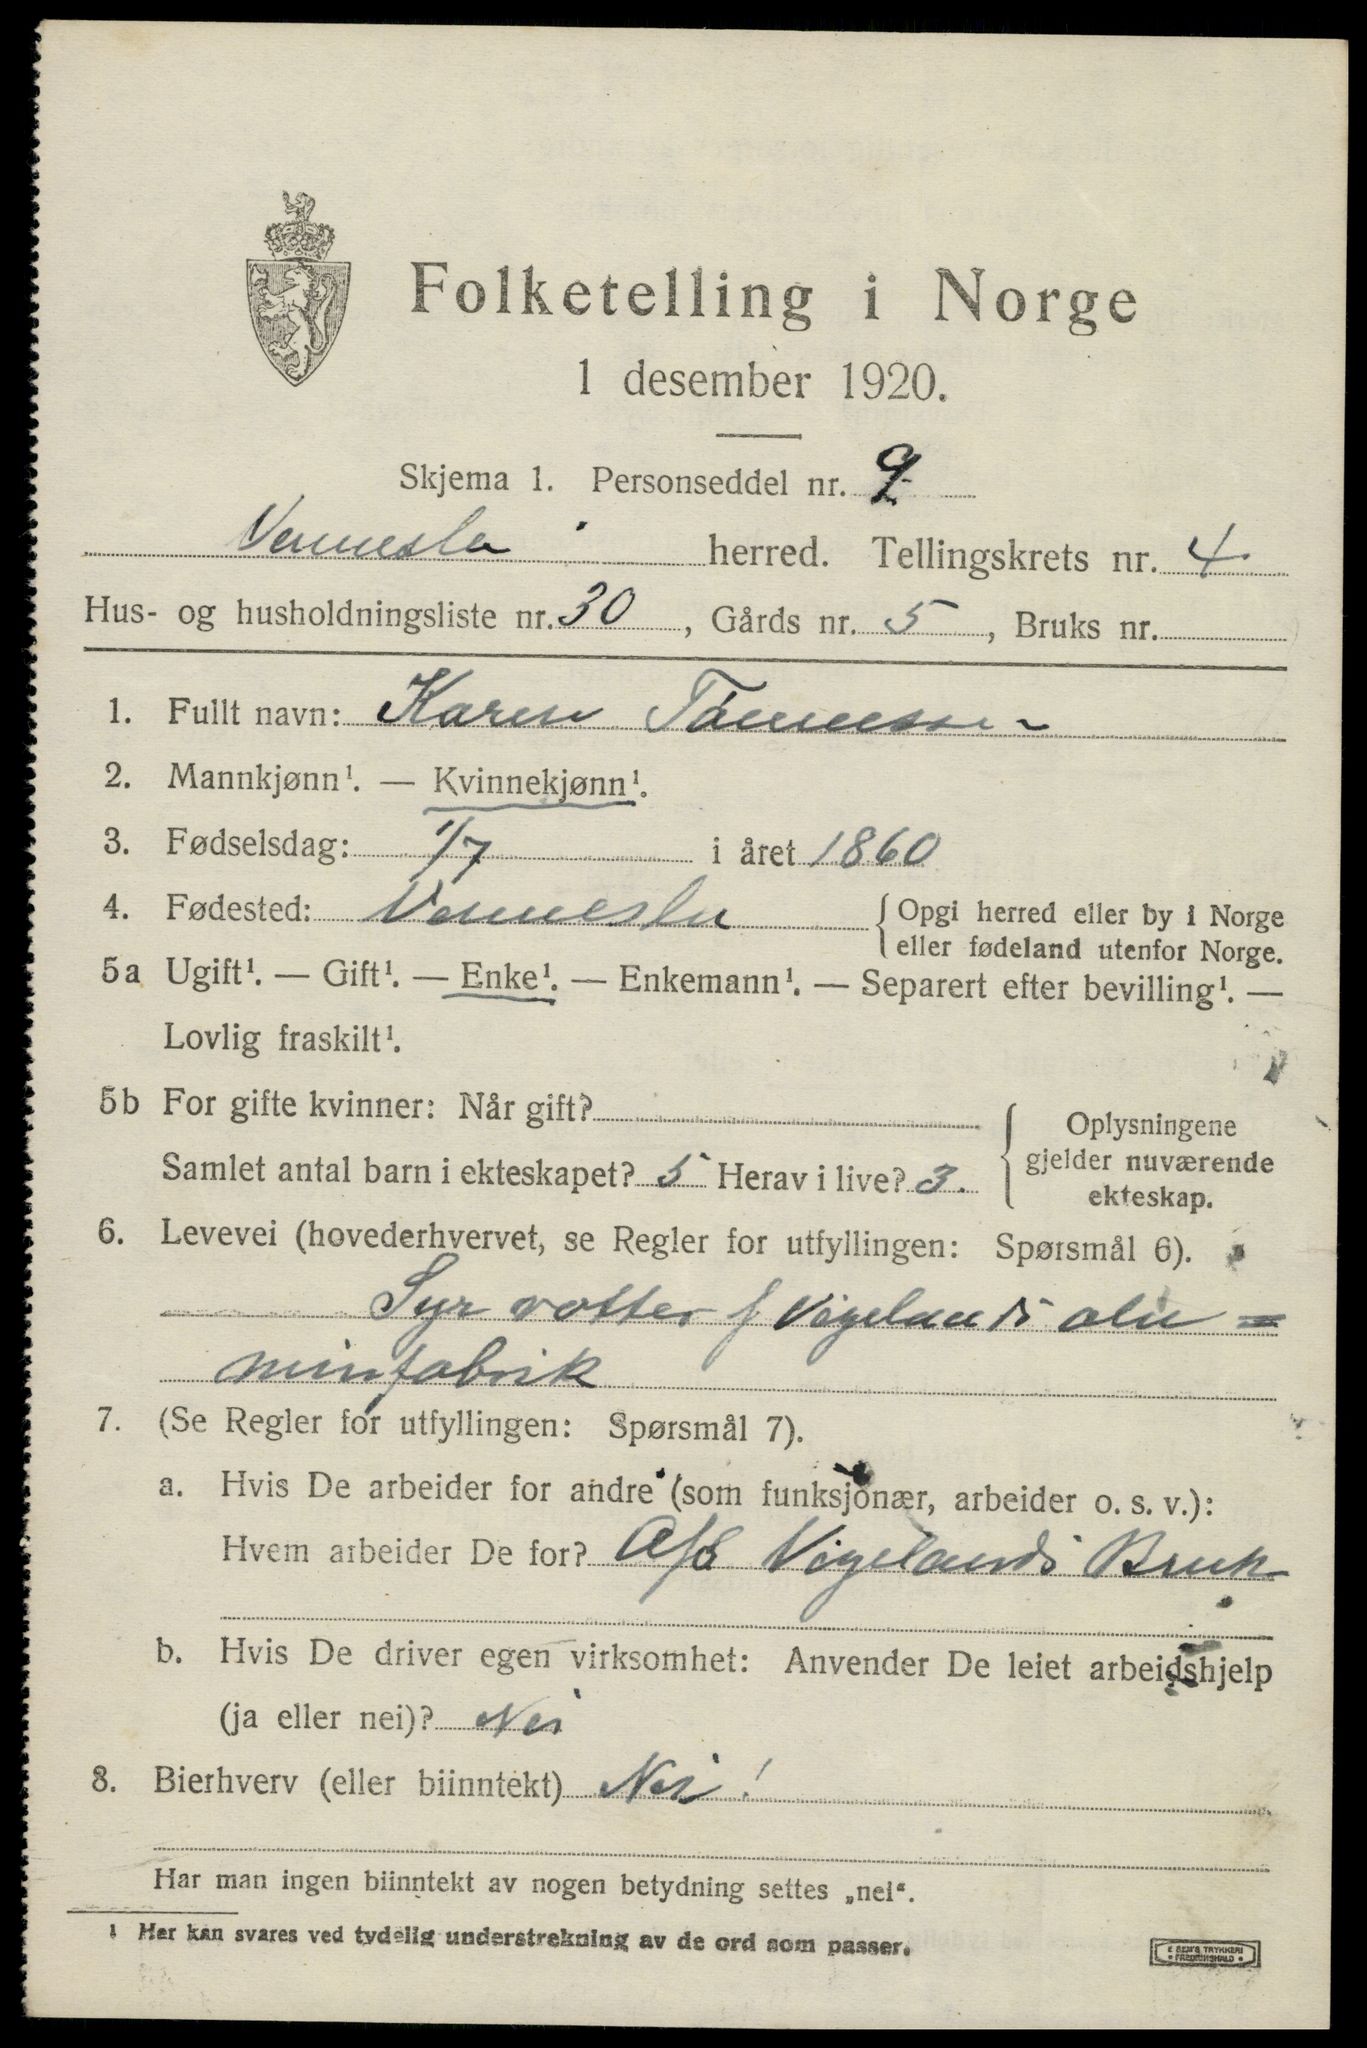 Folketelling i Norge
1 desember 1920.
Skjema 1. Personseddel nr. 2
Vennesla herred. Tellingskrets nr. 4
Hus- og husholdningsliste nr. 30, Gårds nr. 5, Bruks nr.
1. Fullt navn: Karen Tønnessen
2. Mannkjønn¹. — Kvinnekjønn¹.
3. Fødselsdag: 1/7 i året 1860
4. Fødested: Vennesla { Opgi herred eller by i Norge
eller fødeland utenfor Norge.
5a Ugift¹. — Gift¹. — Enke¹. — Enkemann¹. — Separert efter bevilling¹. —
Lovlig fraskilt¹.
5b For gifte kvinner: Når gift?
Samlet antal barn i ekteskapet? 5 Herav i live? 3.
Oplysningene
gjelder nuværende
ekteskap.
6. Levevei (hovederhvervet, se Regler for utfyllingen: Spørsmål 6).
Syr votter f Vigelands alu=
minfabrik
7. (Se Regler for utfyllingen: Spørsmål 7).
a. Hvis De arbeider for andre (som funksjonær, arbeider o. s. v.):
Hvem arbeider De for? A/S Vigelands Bruk
b. Hvis De driver egen virksomhet: Anvender De leiet arbeidshjelp
(ja eller nei)? Nei
8. Bierhverv (eller biinntekt) Nei!
Har man ingen biinntekt av nogen betydning settes „nei“.
¹ Her kan svares ved tydelig understrekning av de ord som passer.
E SEM'S TRYKKERI
• FREDRIKSHALD •